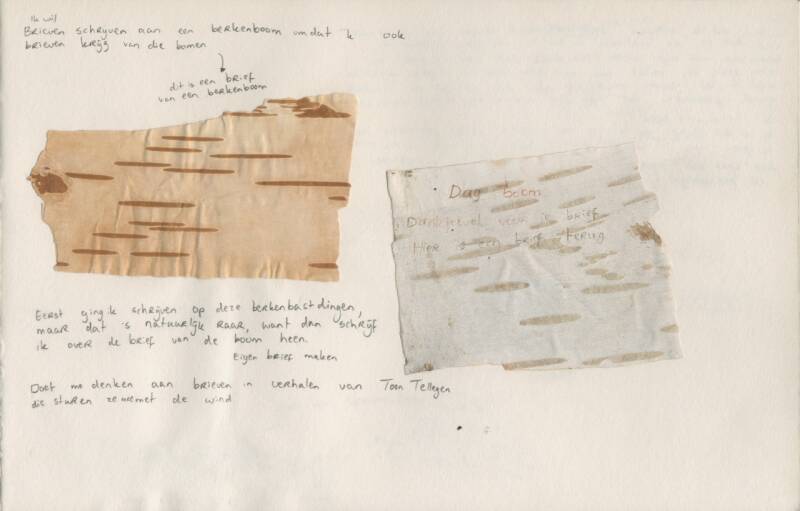 Ik wil
Brieven schrijven aan een berkenboom omdat ik ook
brieven krijg van die bomen
dit is een brief
van een berkenboom
Dag boom
Dankjewel voor je brief
Hier is een brief terug
Eerst ging ik schrijven op deze berkenbastdingen,
maar dat is natuurlijk raar, want dan schrijf
ik over de brief van de boom heen.
Eigen brief maken
Doet me denken aan brieven in verhalen van Toon Tellegen
die sturen ze met de wind